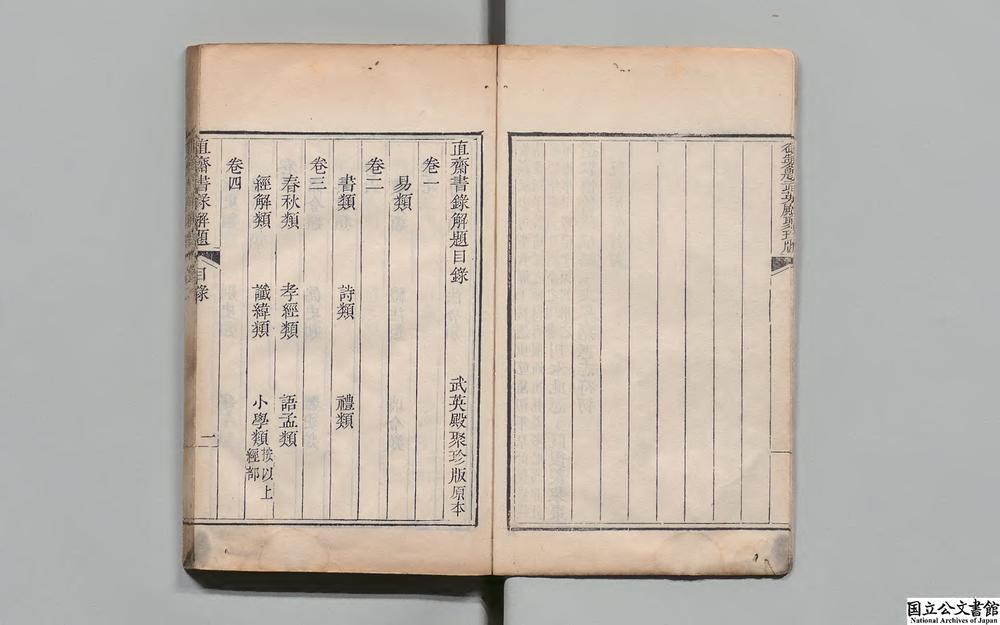 直齋書錄解題目錄 武英殿聚珍版原本
卷一
易類
卷二
書類 詩類 禮類
卷三
春秋類 孝經類 語孟類
經解類 讖緯類 小學類 按以上經部
卷四
直齋書錄解題 目錄 二
国立公文書館
National Archives of Japan